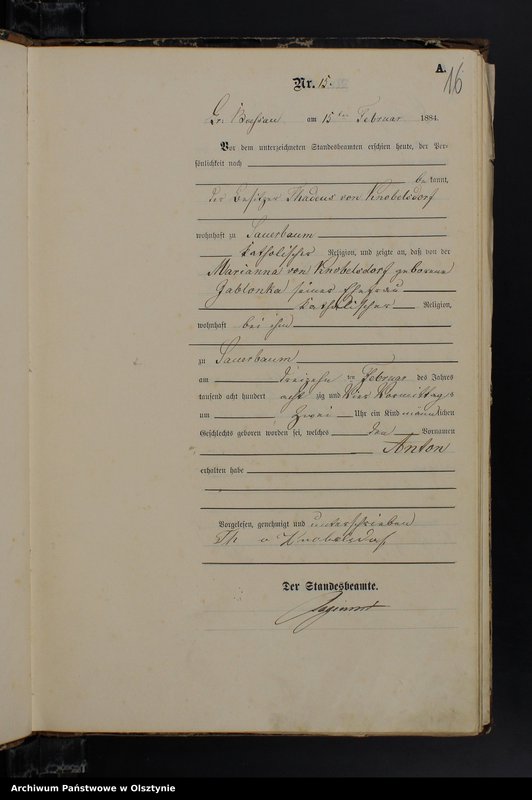 A.
16
Nr. 15.
Gr. Boessau am 15ten Februar 1884.
Vor dem unterzeichneten Standesbeamten erschien heute, der Per-
sönlichkeit nach
be kannt,
der Besitzer Thadeus von Knobelsdorf
wohnhaft zu Sauerbaum
katholischer Religion, und zeigte an, daß von der
Marianna von Knobelsdorf geborene
Jablonka seiner Ehefrau
katholischer Religion,
wohnhaft bei ihm
zu Sauerbaum
am dreizehn ten Februar des Jahres
tausend acht hundert acht zig und vier Vormittags
um zwei Uhr ein Kind männlichen
Geschlechts geboren worden sei, welches den Vornamen
Anton
erhalten habe
Vorgelesen, genehmigt und unterschrieben
Th v Knobelsdorf
Der Standesbeamte.
Archiwum Państwowe w Olsztynie